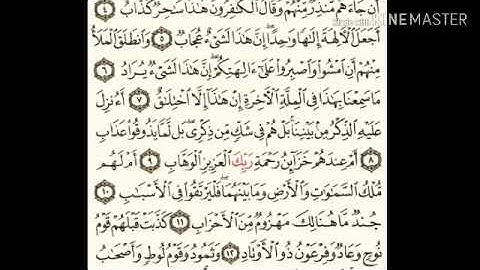 أَن جَاءَهُم مُّنذِرٌ مِّنْهُمْ وَقَالَ الْكَافِرُونَ هَٰذَا سَاحِرٌ كَذَّابٌ ٤
أَجَعَلَ الْآلِهَةَ إِلَٰهًا وَاحِدًا إِنَّ هَٰذَا لَشَيْءٌ عُجَابٌ ٥ وَانطَلَقَ الْمَلَأُ
مِنْهُمْ أَنِ امْشُوا وَاصْبِرُوا عَلَىٰ آلِهَتِكُمْ إِنَّ هَٰذَا لَشَيْءٌ يُرَادُ ٦
مَا سَمِعْنَا بِهَٰذَا فِي الْمِلَّةِ الْآخِرَةِ إِنْ هَٰذَا إِلَّا اخْتِلَاقٌ ٧ أَءُنزِلَ
عَلَيْهِ الذِّكْرُ مِن بَيْنِنَا بَلْ هُمْ فِي شَكٍّ مِّن ذِكْرِي بَل لَّمَّا يَذُوقُوا عَذَابِ
٨ أَمْ عِندَهُمْ خَزَائِنُ رَحْمَةِ رَبِّكَ الْعَزِيزِ الْوَهَّابِ ٩ أَمْ لَهُم
مُّلْكُ السَّمَاوَاتِ وَالْأَرْضِ وَمَا بَيْنَهُمَا فَلْيَرْتَقُوا فِي الْأَسْبَابِ ١٠
جُندٌ مَّا هُنَالِكَ مَهْزُومٌ مِّنَ الْأَحْزَابِ ١١ كَذَّبَتْ قَبْلَهُمْ قَوْمُ
نُوحٍ وَعَادٌ وَفِرْعَوْنُ ذُو الْأَوْتَادِ ١٢ وَثَمُودُ وَقَوْمُ لُوطٍ وَأَصْحَابُ
KINEMASTER